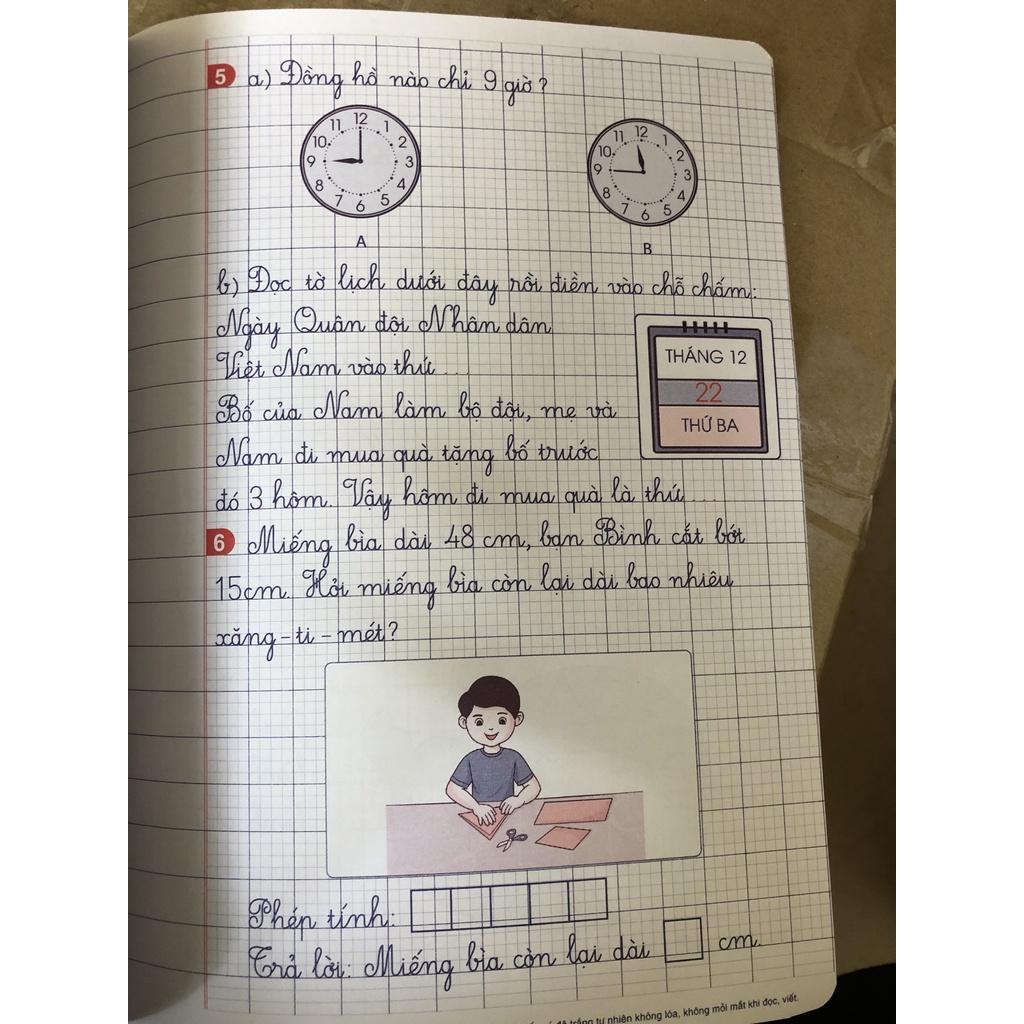 5 a) Đồng hồ nào chỉ 9 giờ?
12 1 2 3 4 5 6 7 8 9 10 11
12 1 2 3 4 5 6 7 8 9 10 11
A
B
b) Đọc tờ lịch dưới đây rồi điền vào chỗ chấm:
Ngày Quân đội Nhân dân
Việt Nam vào thứ ...
THÁNG 12
22
THỨ BA
Bố của Nam làm bộ đội, mẹ và
Nam đi mua quà tặng bố trước
đó 3 hôm. Vậy hôm đi mua quà là thứ ...
6 Miếng bìa dài 48 cm, bạn Bình cắt bớt
15cm. Hỏi miếng bìa còn lại dài bao nhiêu
xăng - ti - mét?
Phép tính:
Trả lời: Miếng bìa còn lại dài cm.
trắng tự nhiên không lóa, không mỏi mắt khi đọc, viết.